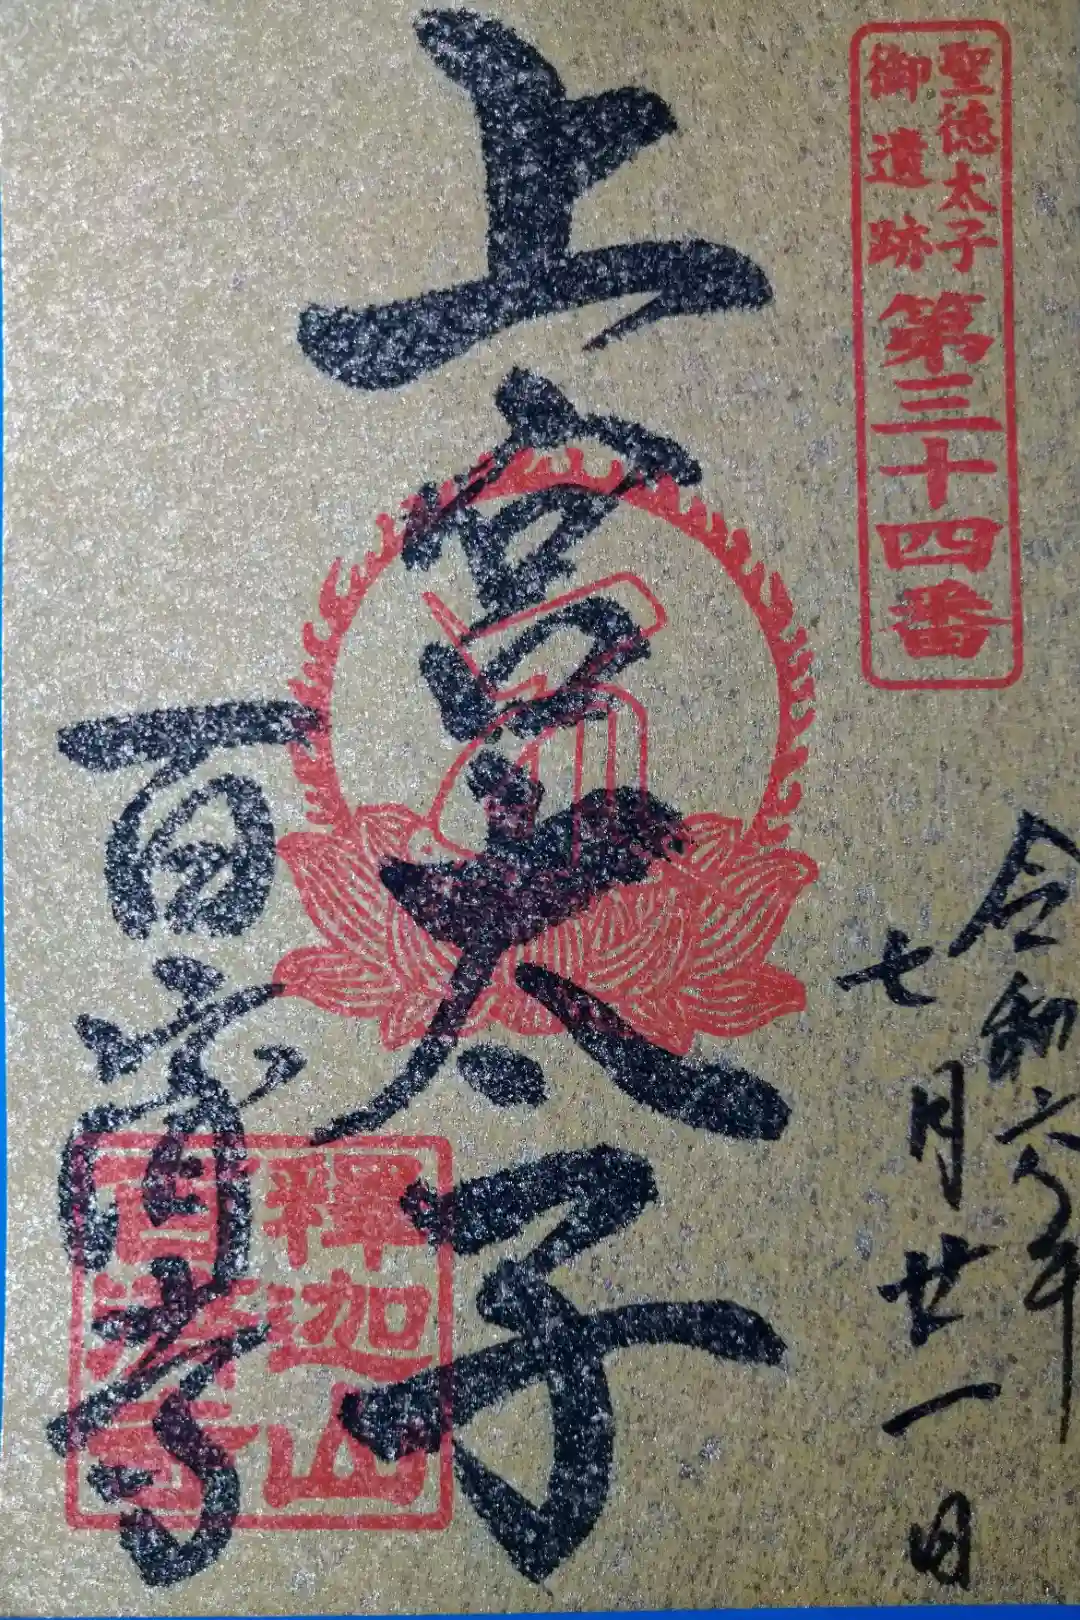 聖徳太子
御遺跡
第三十四番
令和六年
七月廿一日
上宮太子
百済寺
釋迦山
百済寺